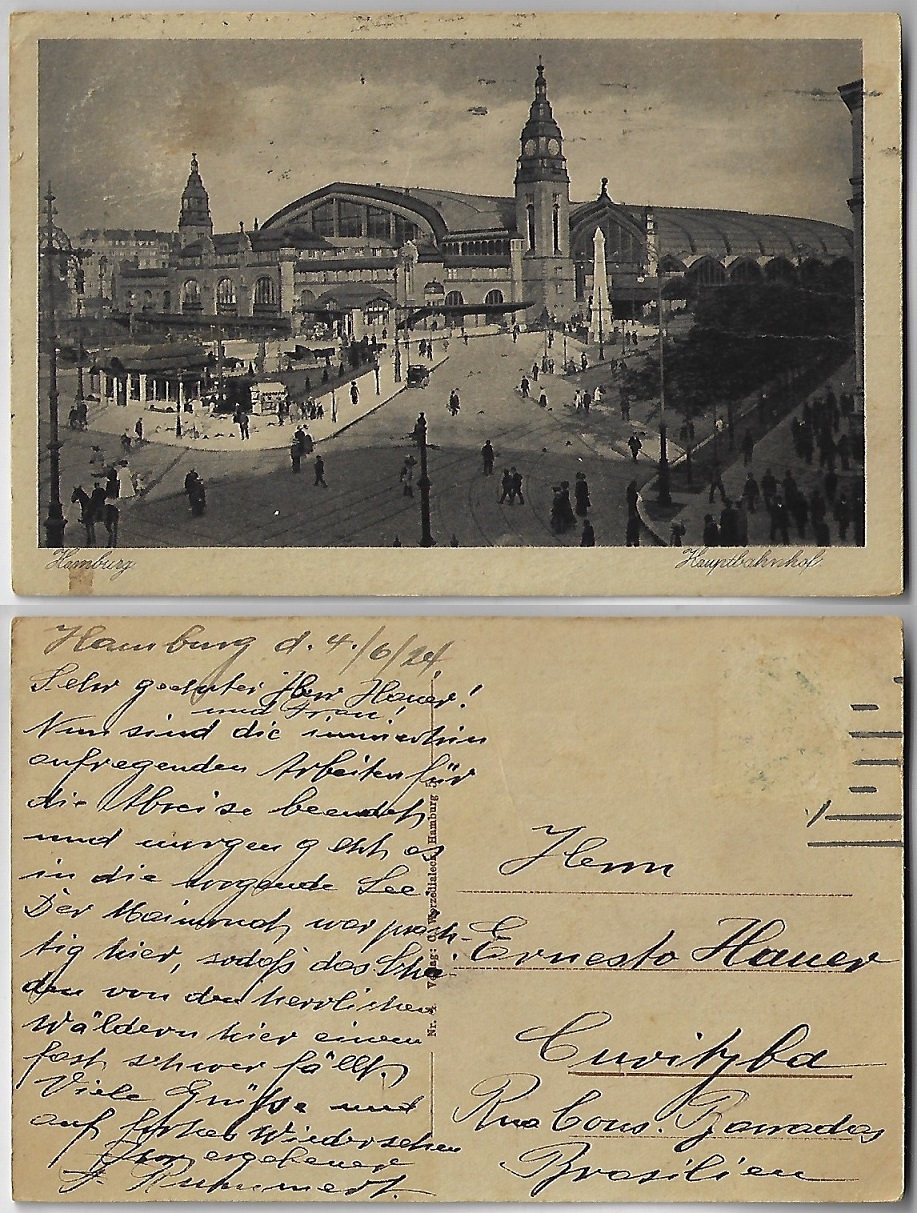 Hamburg
Hauptbahnhof
Hamburg d. 4./6/24
Sehr geehrter Herr Hauer!
und Frau!
Nun sind die immerhin
aufregenden Arbeiten für
die Abreise beendet,
und morgen geht es
in die wogende See.
Der Mai war präch-
tig hier, sodaß das Schei-
den von den herrlichen
Wäldern hier einem
fast schwer fällt.
Viele Grüße und
auf Wiedersehen
Ihr ergebener
Nr. Verlag: Hamburg 5
Herrn
Ernesto Hauer
Curityba
Rua Cons. Barradas
Brasilien